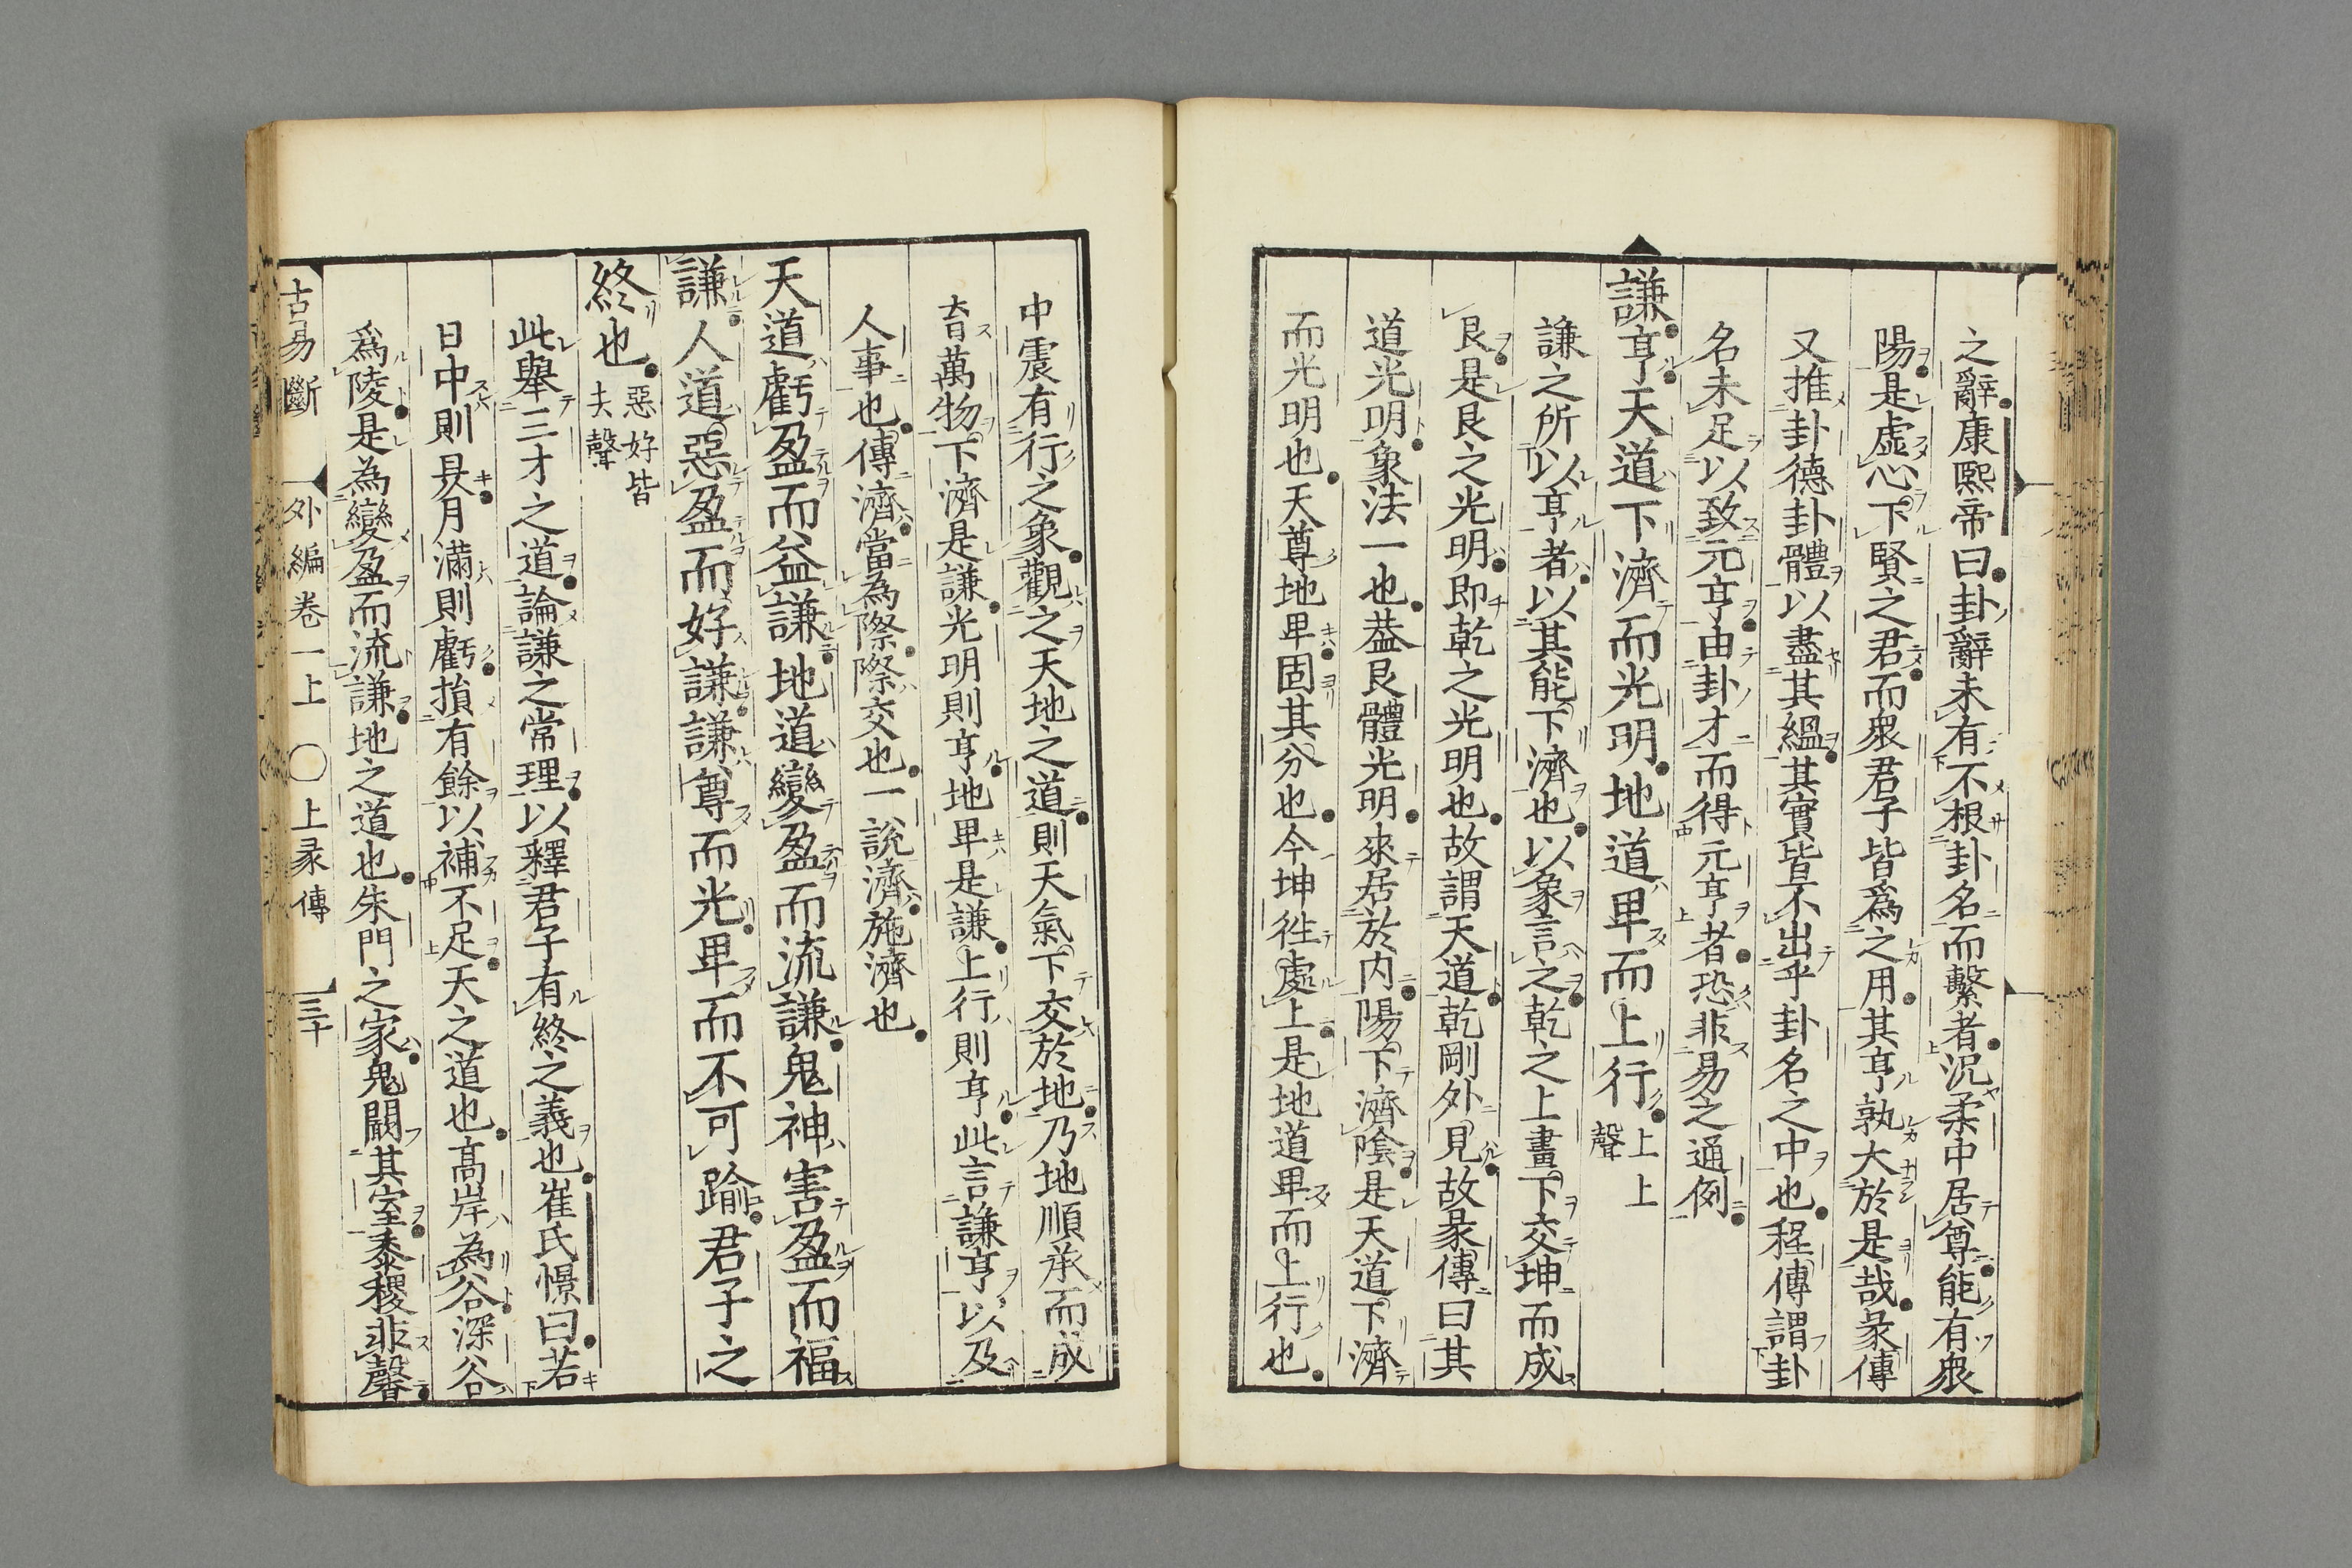 之辭康熙帝曰卦辭未有不根卦名而繫者況柔中居尊能有衆
陽是虛心下賢之君而衆君子皆爲之用其亨孰大於是哉彖傳
又推卦德卦體以盡其縕其實皆不出乎卦名之中也程傳謂卦
名未足以致元亨由卦才而得元亨者恐非易之通例
謙亨天道下濟而光明地道卑而上行上上聲
謙之所以亨者以其能下濟也以象言之乾之上畫下交坤而成
艮是艮之光明即乾之光明也故謂天道乾剛外見故彖傳曰其
道光明象法一也蓋艮體光明來居於内陽下濟陰是天道下濟
而光明也天尊地卑固其分也今坤往處上是地道卑而上行也
中震有行之象觀之天地之道則天氣下交於地乃地順承而成
育萬物下濟是謙光明則亨地卑是謙上行則亨此言謙亨以及
人事也傳濟當為際際交也一說濟施濟也
天道虧盈而益謙地道變盈而流謙鬼神害盈而福
謙人道惡盈而好謙謙尊而光卑而不可踰君子之
終也惡好皆去聲
此舉三才之道論謙之常理以釋君子有終之義也崔氏憬曰若
日中則昃月滿則虧損有餘以補不足天之道也高岸為谷深谷
爲陵是為變盈而流謙地之道也朱門之家鬼闞其室黍稷非馨
古易斷 外編卷一上 ○上彖傳 三十